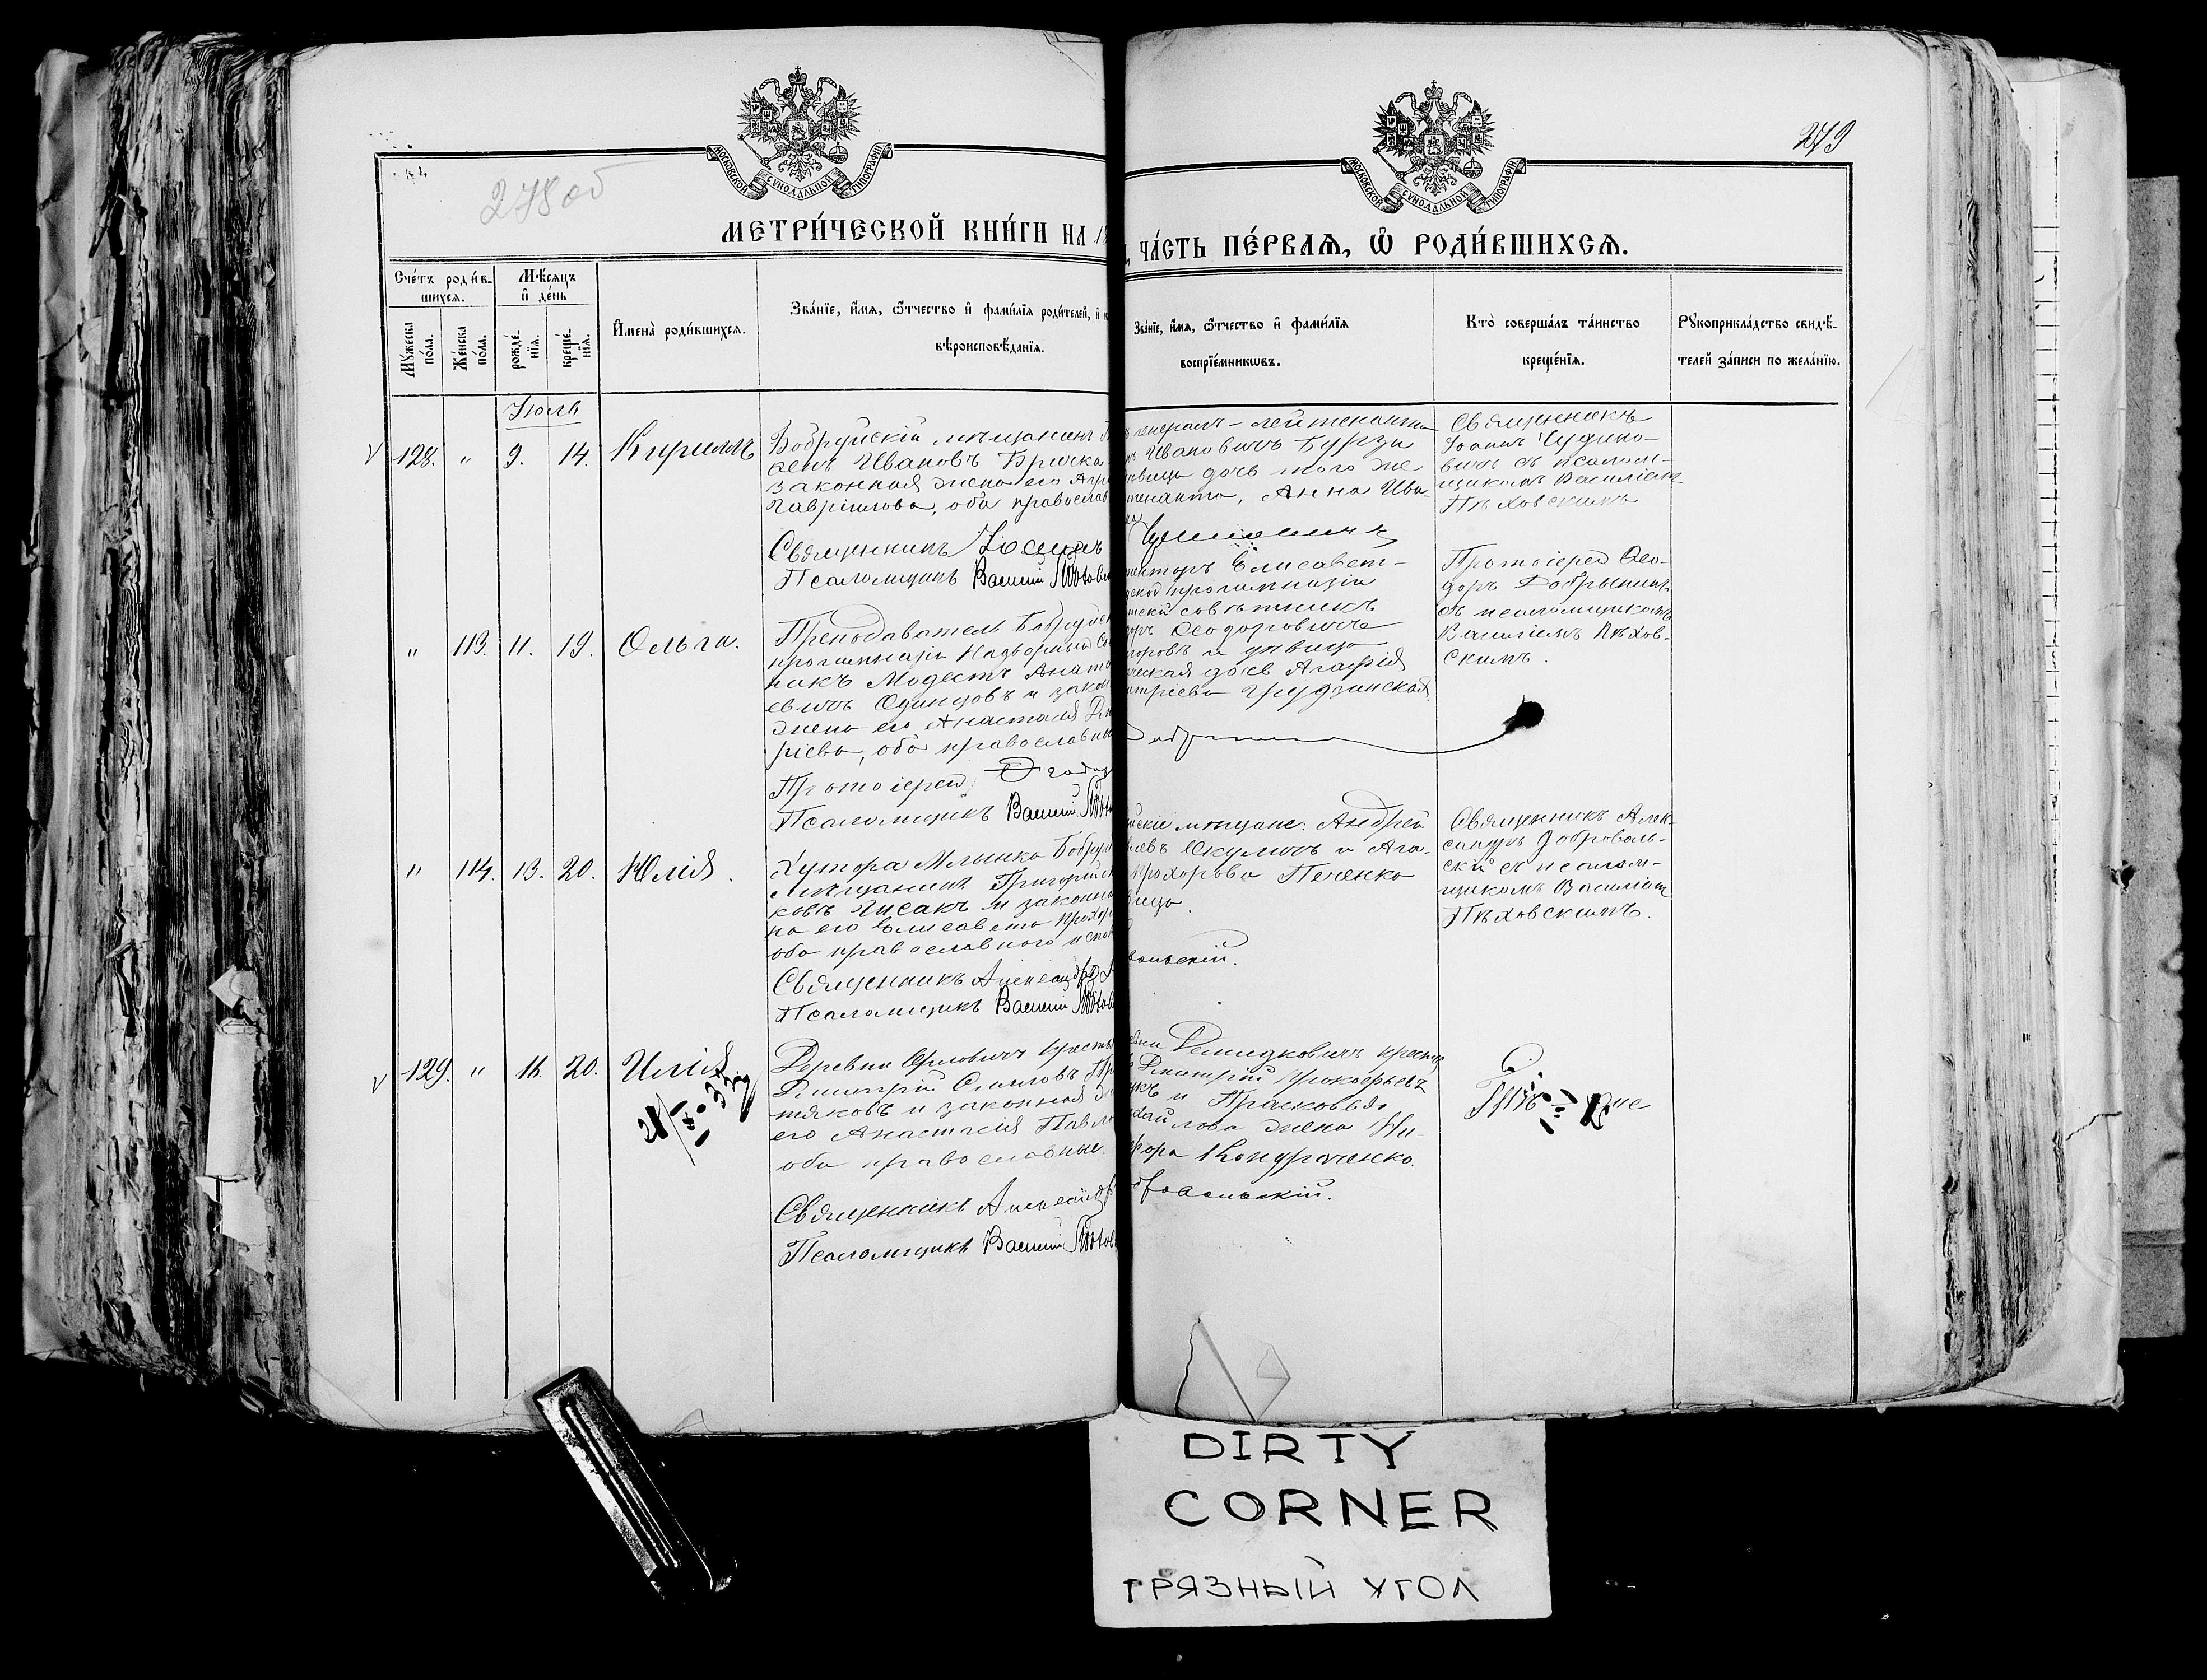 278 об
279
МОСКОВСКОЙ СѴНОДАЛЬНОЙ ТИПОГРАФІИ
МОСКОВСКОЙ СѴНОДАЛЬНОЙ ТИПОГРАФІИ
МЕТРИ́ЧЕСКОЙ КНИ́ГИ НА 18
ЧА́СТЬ ПЕ́РВАѦ, Ѽ РОДИ́ВШИХСѦ.
Сче́тъ роди́в-
шихсѧ.
Мꙋ́жеска по́ла.
Же́нска по́ла.
Мѣ́сѧцъ
и҆ де́нь
рожде́нїѧ.
креще́нїѧ.
И҆мена̀ роди́вшихсѧ.
Зва́нїе, и҆́мѧ, ѻ҆́тчество и҆ фами́лїѧ роди́телей, и҆
вѣроисповѣ́данїѧ.
Зва́нїе, и҆́мѧ, ѻ҆́тчество и҆ фами́лїѧ
воспрїе́мникѡвъ.
Кто̀ соверша́лъ та́инство
креще́нїѧ.
Рꙋкоприкла́дство свидѣ́-
телей за́писи по жела́нїю.
Іюль
128. " 9. 14. Кириллъ
Бобруйскій мѣщанинъ
Ивановъ Бричка
законная жена его
Гаврiилова, оба православ
Священникъ Іоаннъ
Псаломщикъ Василій Пѣховс
генералъ-лейтенанта
Ивановичъ Бурза
дочь того же
тенанта, Анна Ива-
Священникъ
Іоаннъ Чудино-
вичъ съ псалом-
щикомъ Василіемъ
Пѣховскимъ
" 113. 11. 19. Ольга.
Преподаватель Бобруйск
прогимназіи Надворный Со
никъ Модестъ Анато
евичъ Одинцовъ и закон
жена его Анастасія Дми
ріева, оба православны
Протоіерей
Псаломщикъ Василій Пѣхо
Елисавет-
прогимназіи
совѣтникъ
Ѳеодоровичъ
и дѣвица
дочь Агафія
итріева Грудзинская
Протоіерей Ѳео-
доръ Добрынинъ
съ псаломщикомъ
Василіемъ Пѣхов-
скимъ.
" 114. 13. 20. Юлія.
Хутора Млынка Бобруй
мѣщанинъ Григорій
ковъ Чисакъ и законна
на его Елисавета Прохор
оба православного испов
Священникъ Александръ
Псаломщикъ Василій Пѣхов
йскіе мѣщане: Андрей
Шкуличъ и Ага-
Прохорова Печенко
вица.
вольскій.
Священникъ Алек-
сандръ Доброволь-
скій съ псалом-
щикомъ Василіемъ
Пѣховскимъ.
129. " 16. 20. Илія
Деревни Орловичъ кресть
Дмитрій
тяковъ и законная
его Анастасія Павло
оба православные.
Священникъ Александръ
Псаломщикъ Василій Пѣхов
Демидковичъ крестья
Дмитрій Прокофьевъ
и Прасковья
хайлова жена Ни-
фора Кондраченко.
бровольскій.
DIRTY
CORNER
ГРЯЗНЫЙ УГОЛ